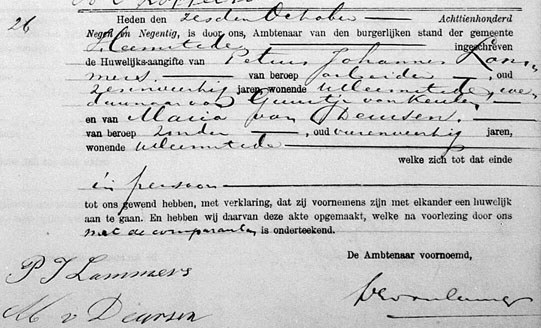 26
Heden den zesden October Achttienhonderd
Negen en Negentig, is door ons, Ambtenaar van den burgerlijken stand der gemeente
Heemstede ingeschreven
de Huwelijks-aangifte van Petrus Johannes Lam-
mers van beroep arbeider, oud
zesenveertig jaren, wonende te Heemstede, we-
duwnaar van Guurtje van Keulen
en van Maria van Deursen,
van beroep zonder, oud vierenveertig jaren,
wonende te Heemstede
welke zich tot dat einde
in persoon
tot ons gewend hebben, met verklaring, dat zij voornemens zijn met elkander een huwelijk
aan te gaan. En hebben wij daarvan deze akte opgemaakt, welke na voorlezing door ons
met de comparanten is onderteekend.
De Ambtenaar voornoemd,
P J Lammers
M v Deursen